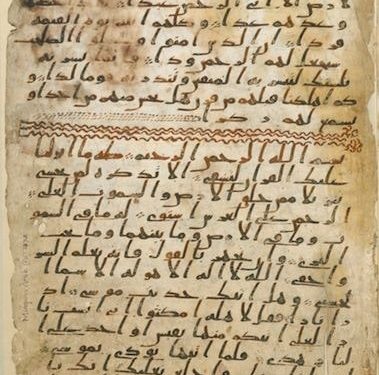 لارض الا اتى الرحمن عبدا
وعدهم عدا وكلهم اتيه يوم القيمه
فردا ان الذين امنوا وعملوا الصلحت
سيجعل لهم الرحمن ودا فانما يسرنه
بلسنك لتبشر به المتقين وتنذر به قوما لدا و
كم اهلكنا قبلهم من قرن هل تحس منهم من احد او
تسمع لهم ركزا
بسم الله الرحمن الرحيم طه ما انزلنا
عليك القران لتشقى الا تذكره لمن يخشى
تنزيلا ممن خلق الارض والسموت العلى
الرحمن على العرش استوى له ما في السمو
ت وما في الارض وما بينهما وما تحت
الثرى وان تجهر بالقول فانه يعلم السر
واخفى الله لا اله الا هو له الاسما ا
لحسنى وهل اتيك حديث موسى اذ
را نارا فقل لاهله امكثوا اني انست نا
را لعلي اتيكم منها بقبس او اجد على ا
لنار هدى فلما اتيها نودي يموسى
اني انا ربك فاخلع نعليك انك با